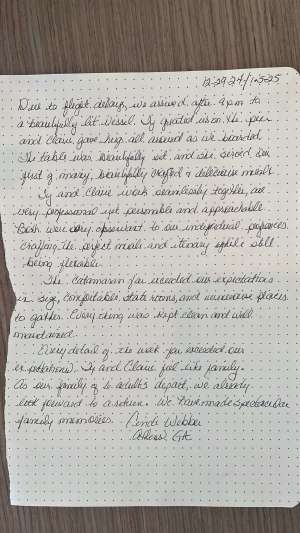 12-29-24/1-5-25
Due to flight delays, we arrived after 9pm to
a beautifully lit vessel. Ty greeted us on the pier
and Claire gave hugs all around as we boarded.
The table was beautifully set and she served our
first of many, beautifully crafted & delicious meals.
Ty and Claire work seamlessly together, are
very professional yet personable and approachable.
Both were very observant to our individual preferences
crafting the perfect meals and itinerary while still
being flexible.
The catamaran far exceeded our expectations
in size, comfortable state rooms, and numerous places
to gather. Everything was kept clean and well
maintained.
Every detail of the week far exceeded our
expectations. Ty and Claire feel like family.
As our family of 6 adults depart, we already
look forward to a return. We have made spectacular
family memories. Cindi Webber
GA